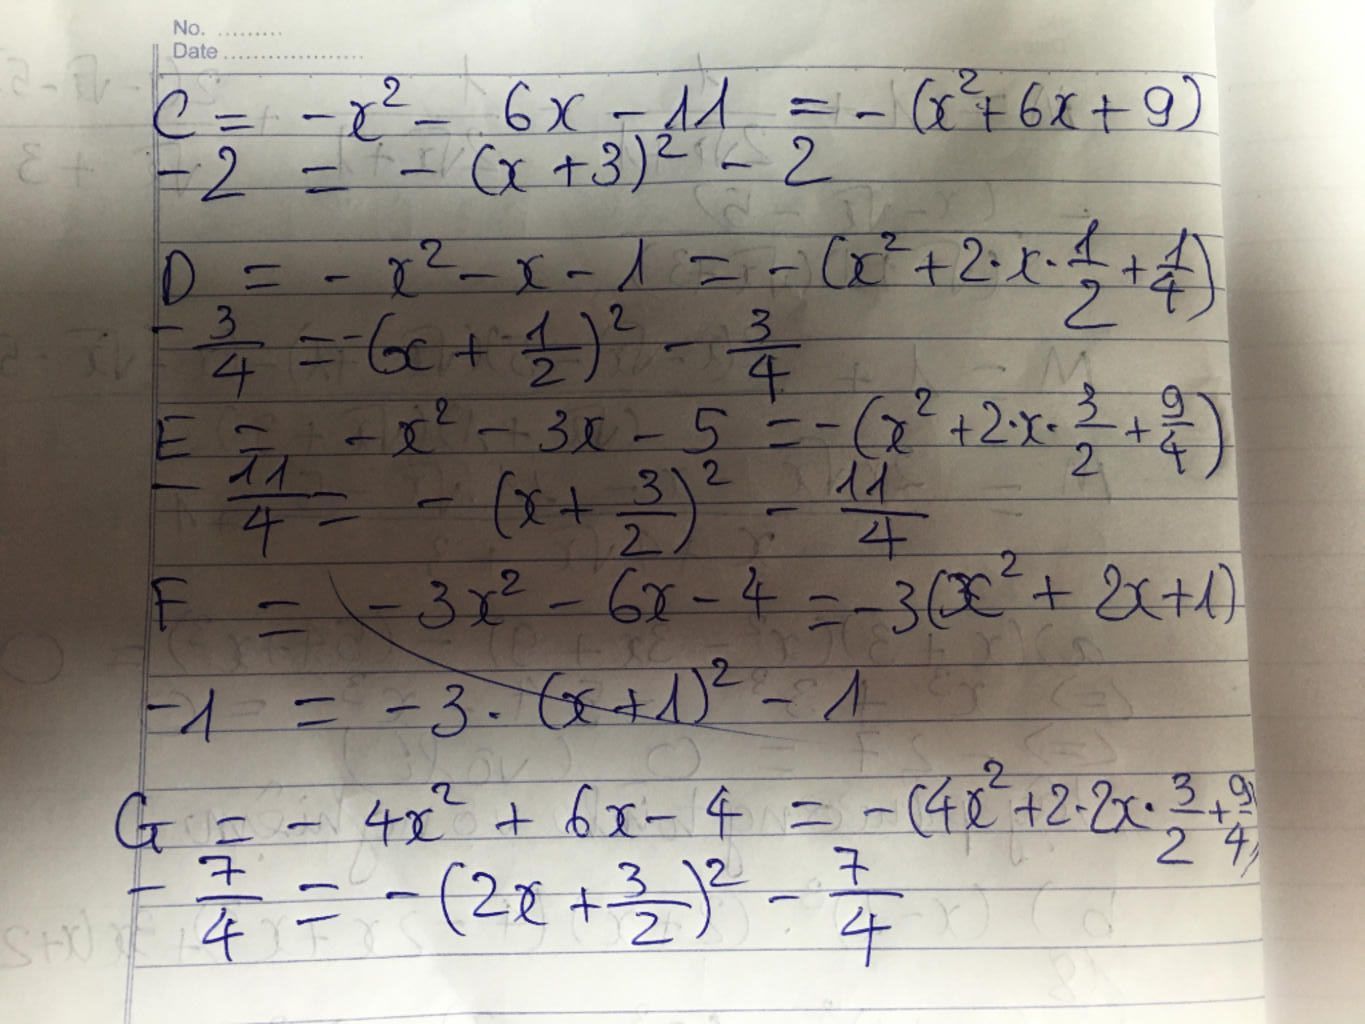 No. .........
Date ...................
C = -x² - 6x - 11 = -(x² + 6x + 9)
-2 = -(x + 3)² - 2
D = -x² - x - 1 = -(x² + 2·x·1/2 + 1/4)
-3/4 = -(x + 1/2)² - 3/4
E = -x² - 3x - 5 = -(x² + 2·x·3/2 + 9/4)
-11/4 = -(x + 3/2)² - 11/4
F = -3x² - 6x - 4 = -3(x² + 2x + 1)
-1 = -3·(x + 1)² - 1
G = -4x² + 6x - 4 = -(4x² + 2·2x·3/2 + 9/4)
-7/4 = -(2x + 3/2)² - 7/4